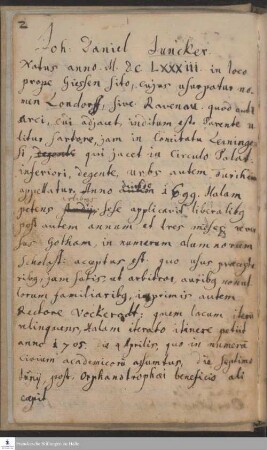 2
Joh. Daniel Juncker
Natus anno M. DC LXXXIII. in loco
prope Giessen sito, cujus usurpatur no-
men Londorff, sive Ravenau quod aut
arci, cui adjacet, inditum est. Parente u-
titur sartore, jam in Comitatu Leininge-
si qui jacet in Circulo Palat.
inferiori, degente, urbs autem dürckheim
appellatur. Anno 1699. Halam
petens sese applicavit liberalibq
post autem annum et tres menses
sus Gotham, in numerum alumnorum
Scholast: acceptus est, quo usus praecepto-
ribq, jam satis, ut arbitror, auribq
lorum familiaribq, inprimis autem
Rectore Vockerodt: quem locum iterum
relinquens, Halam iterato itinere petiit
anno 1705. die 9 Aprilis, quo in numerū
civium academicorū assumtus, die septimo
Junij post. Orphanotrophaei beneficio ali
cœpit
Franckesche Stiftungen zu Halle